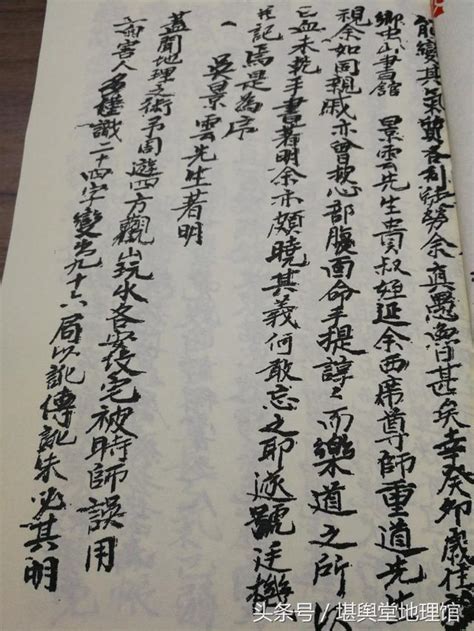 變其氣各余真愚魯甚矣幸癸卯歲在
鄉山書館 景雲先生貴叔姪延余西席尊師重道先生
視余如同親戚亦曾心腹面命手提諄々而樂道之所以
血未乾手書著明余亦頗曉其義何敢忘之耶遂號廷機
記焉是為序
吳景雲先生著明
蓋聞地理之術予周遊四方觀山玩水各家宅被時師誤用
害人多僅識二十四字變出九十六局以訛傳訛未必其明
头条号／堪舆堂地理馆